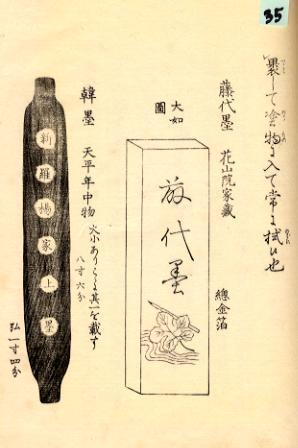 35
裹して塗物に入て常に拭ふ也
藤代墨 花山院家藏
大如圖
總金箔
藤代墨
韓墨 天平年中物 大小あり らく其一を載す
八寸六分
新羅楊家上墨
弘一寸四分